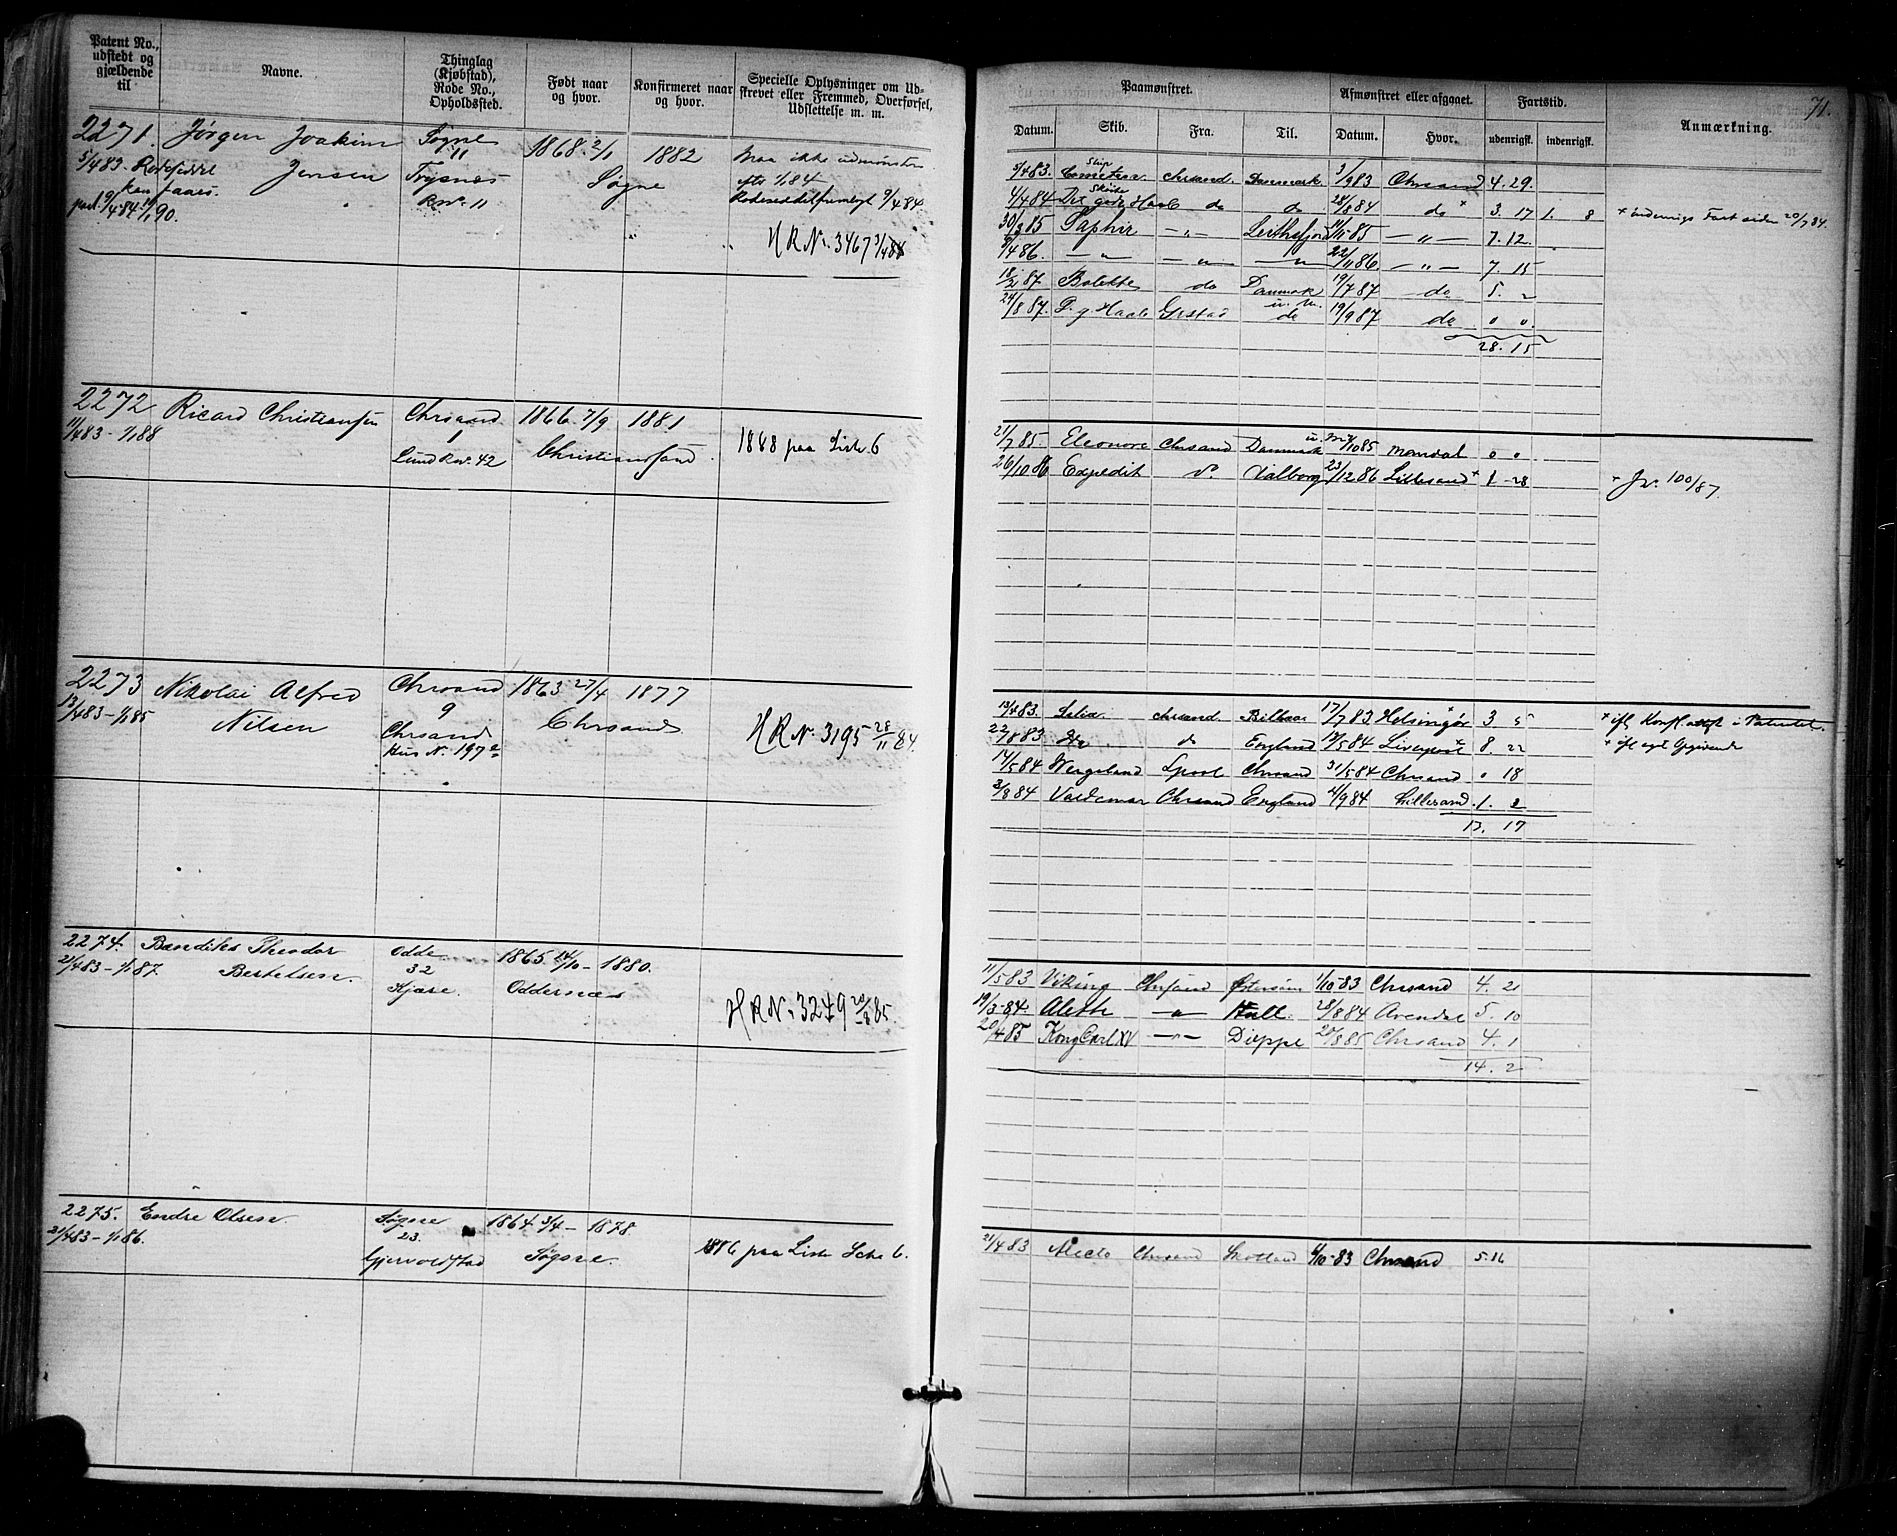 Patent No., udstedt og gjældende til
Navne.
Thinglag (Kjøbstad), Rode No., Opholdssted.
Født naar og hvor.
Konfirmeret naar og hvor.
Specielle Oplysninger om Udskrevet eller Fremmed, Overførsel, Udslettelse m. m.
Paamønstret.
Datum. Skib. Fra. Til.
Afmønstret eller afgaaet.
Datum. Hvor.
Fartstid.
udenrigsk. indenrigsk.
Anmærkning.
71.
2271. Jørgen Joakim Søgne 1868 2/1 1882 maa ikke udmønstres
5/4 83. Jensen 11 Søgne efter 1/1 84
Trysnes
R No. 11
H R No. 3467
83. Skip Chrsand Danmark 83 Chrsand 4. 29.
4/4 84 Det gode Haab do do 28/8 84 do + 3. 17 1. 8 + indenrigs Fart siden
30/3 85 Saphir — „ — 85 — „ — 7. 12.
/4 86. — „ — — „ — — „ — 22/11 86. — „ — 7. 15
18/2 87 Bolette do Danmark 19/7 87 do 5. 2
24/8 87. D. g Haab do 19/9 87 do 0 0.
28. 15
2272 Ricard Christiansen Chrsand 1866 7/9 1881
11/4 83 – 1/1 88 1 Christianssand 1888 paa Liste 6
Lund R No. 42
21/7 85. Eleonore Chrsand Danmark 85 Mandal 0 0
26/10 86 Expedit do. Aalborg 23/12 86 Lillesand + 1 28 + Jr. 100/87.
2273 Nikolai Alfred Chrsand 1863 27/4 1877
13/4 83 – 1/1 85 Nilsen 9 Chrsand H R No. 3195 28/11 84.
Chrsand
Hus N. 197
13/4 83. Chrsand. 17/7 83 Helsingør + 3 5 + ifl.
22/8 83 do England /5 84 Liverpool + 8. 22 + ifl egt Opgivende
17/5 84 Wergeland Lpool Chrsand 31/5 84 Chrsand 0 18
2/8 84 Valdemar Chrsand England 4/9 84 Lillesand. 1. 2
13. 17
2274. Bendiks Theodor Odde 1865 14/10 – 1880.
21/4 83 – 1/1 87. Bertelsen. 32 Oddernæs
Kjære. H R No. 3249 85.
11/5 83 Viking Chrsand 1/10 83 Chrsand 4. 21
19/3 84. Alette — „ — Hull. 28/8 84 Arendal 5. 10
20/4 85 Kong Carl XV — „ — Dieppe 20/8 85 Chrsand 4. 1
14. 2
2275. Endre Olsen. Søgne 1864 3/4 – 1878.
21/4 83 – 1/1 86. 23. Søgne. 1886 paa Liste Litr 6.
Gjervoldstad
21/4 83 Alecto Chrsand Skotland 6/10 83 Chrsand 5. 16